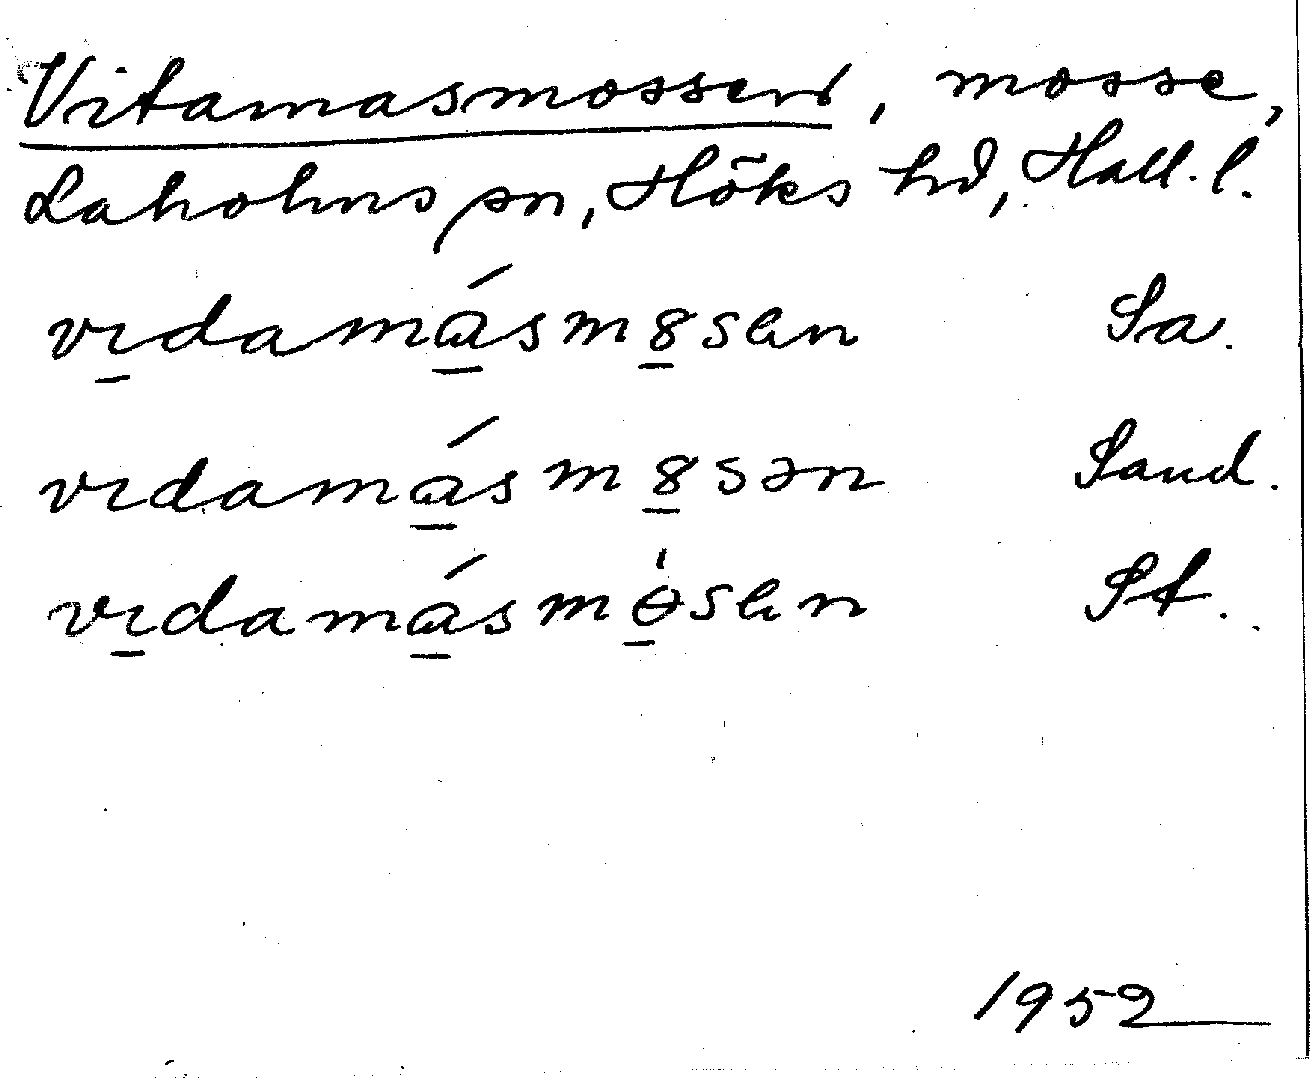 Vitamasmossen, mosse,
Laholms sn, Höks hd, Hall. l.
vı̲damá̲sm8̲sen Sa.
vıdamá̲sm8̲sən Sand.
vı̲damá̲smɵ̲̇sen St.
1952